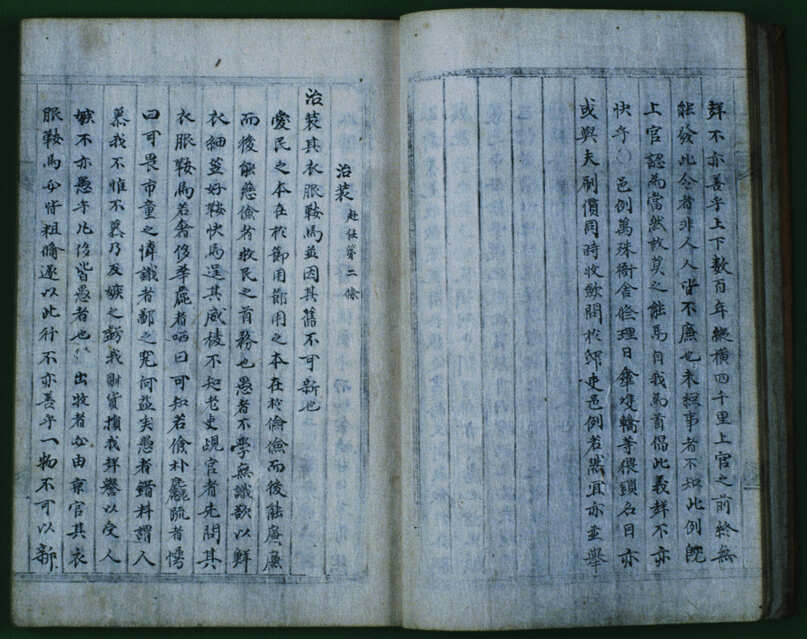 聲不亦善乎上下數百年縱橫四千里上官之前終無
能發此令者非人人皆不廉也未經事者不知此例旣
上官認爲當然故莫之能焉自我爲首倡此義聲不亦
快乎○邑例萬殊衙舍修理日傘雙轎等猥瑣名目亦
或與夫刷價同時收斂問於邸吏邑例若然宜亦並擧
治裝 赴任第二條
治裝其衣服鞍馬並因其舊不可新也
愛民之本在於節用節用之本在於儉儉而後能廉廉
而後能慈儉者牧民之首務也愚者不學無識欲以鮮
衣細笠好鞍快馬逞其威稜不知老吏覘官者先問其
衣服鞍馬若奢侈華麗者哂曰可知若儉朴麤疏者愕
曰可畏市童之憐識者鄙之究何益矣愚者錯料謂人
慕我不惟不慕乃反嫉之虧我財損我聲譽以受人
嫉不亦愚乎凡侈皆愚者也 出牧者必由京官其衣
服鞍馬必皆粗備遂以此行不亦善乎一物不可以新